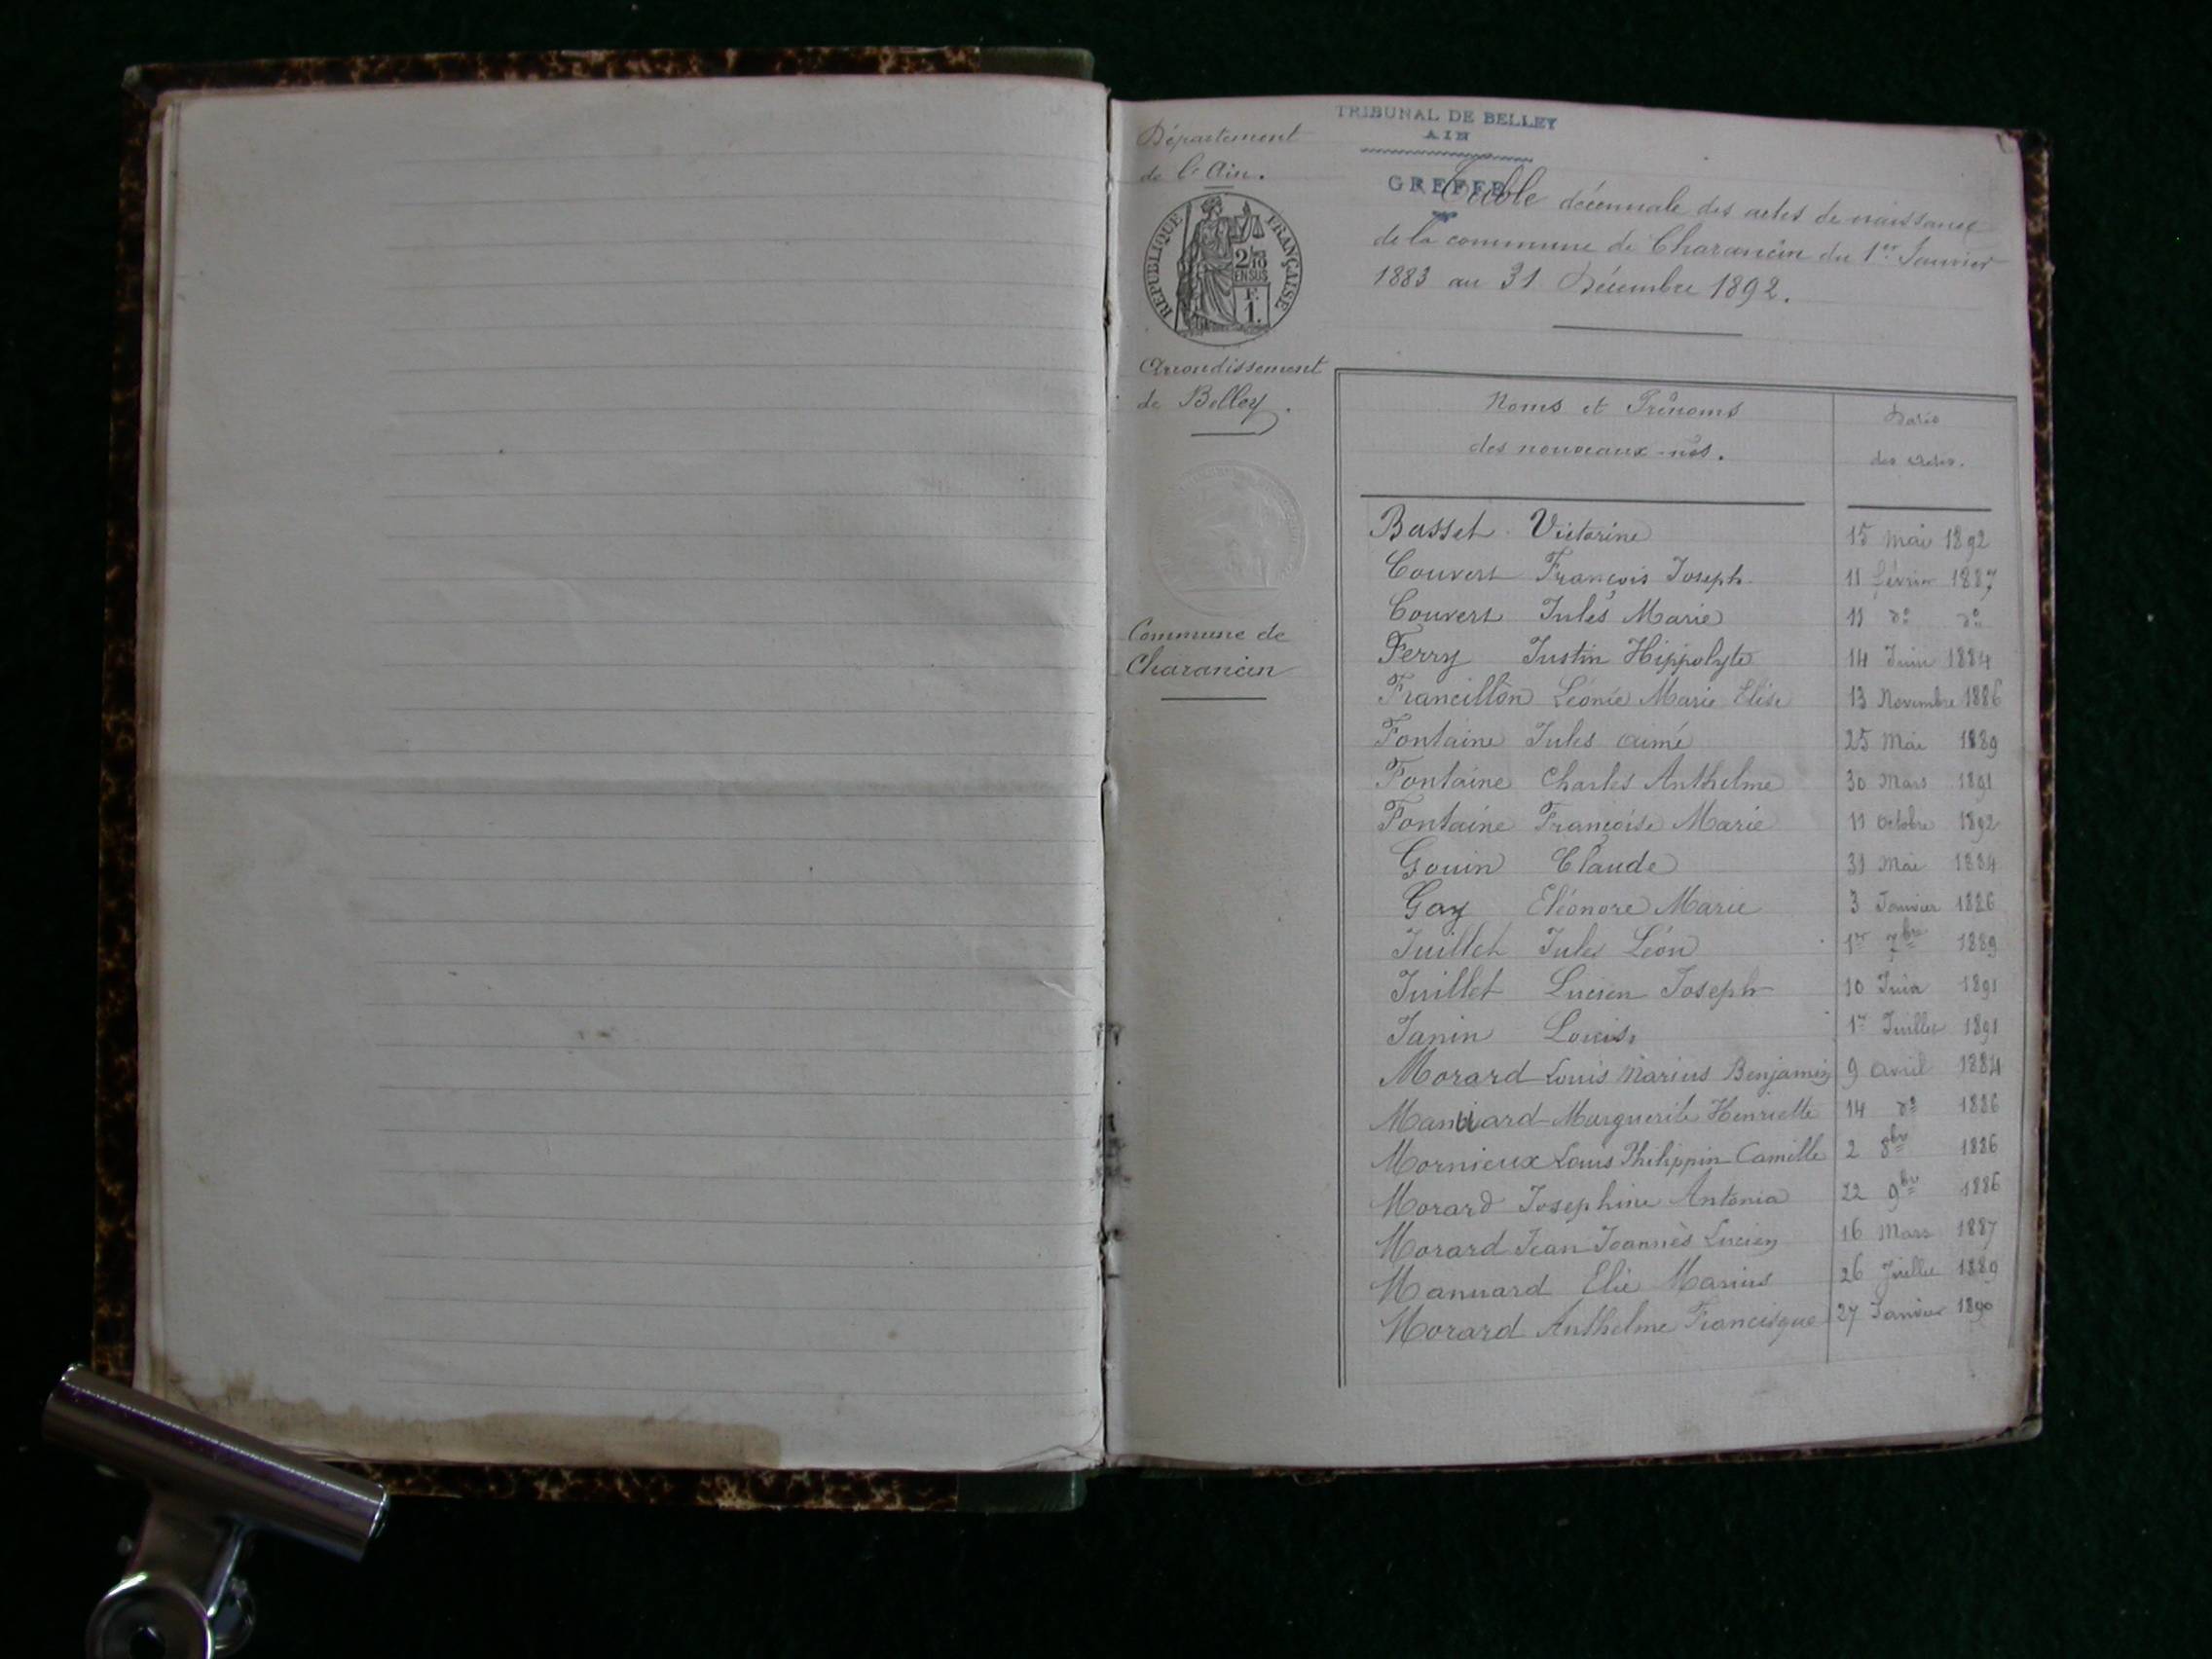 TRIBUNAL DE BELLEY
AIN
GREFFE
Département
de l'Ain.
RÉPUBLIQUE FRANÇAISE
2/10
EN SUS
F.
1.
Arrondissement
de Belley.
Commune de
Charancin
Table décennale des actes de naissance
de la commune de Charancin du 1er Janvier
1883 au 31 Décembre 1892.
Noms et Prénoms
des nouveaux-nés.
Dates
des actes.
Basset Victorine 15 Mai 1892
Couvert François Joseph 11 février 1887
Couvert Jules Marie 11 do do
Ferry Justin Hippolyte 14 Juin 1884
Francillon Léonie Marie Elise 13 Novembre 1886
Fontaine Jules Aimé 25 Mai 1889
Fontaine Charles Anthelme 30 Mars 1891
Fontaine Françoise Marie 11 Octobre 1892
Gouin Claude 31 Mai 1884
Gay Eléonore Marie 3 Janvier 1886
Juillet Jules Léon 1er 7bre 1889
Juillet Lucien Joseph 10 Juin 1891
Janin Louis 1er Juillet 1891
Morard Louis Marius Benjamin 9 Avril 1884
Marguerite Henriette 14 do 1886
Mornieux Louis Philippin Camille 2 8bre 1886
Morard Josephine Antonia 22 9bre 1886
Morard Jean Joannès Lucien 16 Mars 1887
Manuard Elie Marius 26 Juillet 1889
Morard Anthelme Francisque 27 Janvier 1890